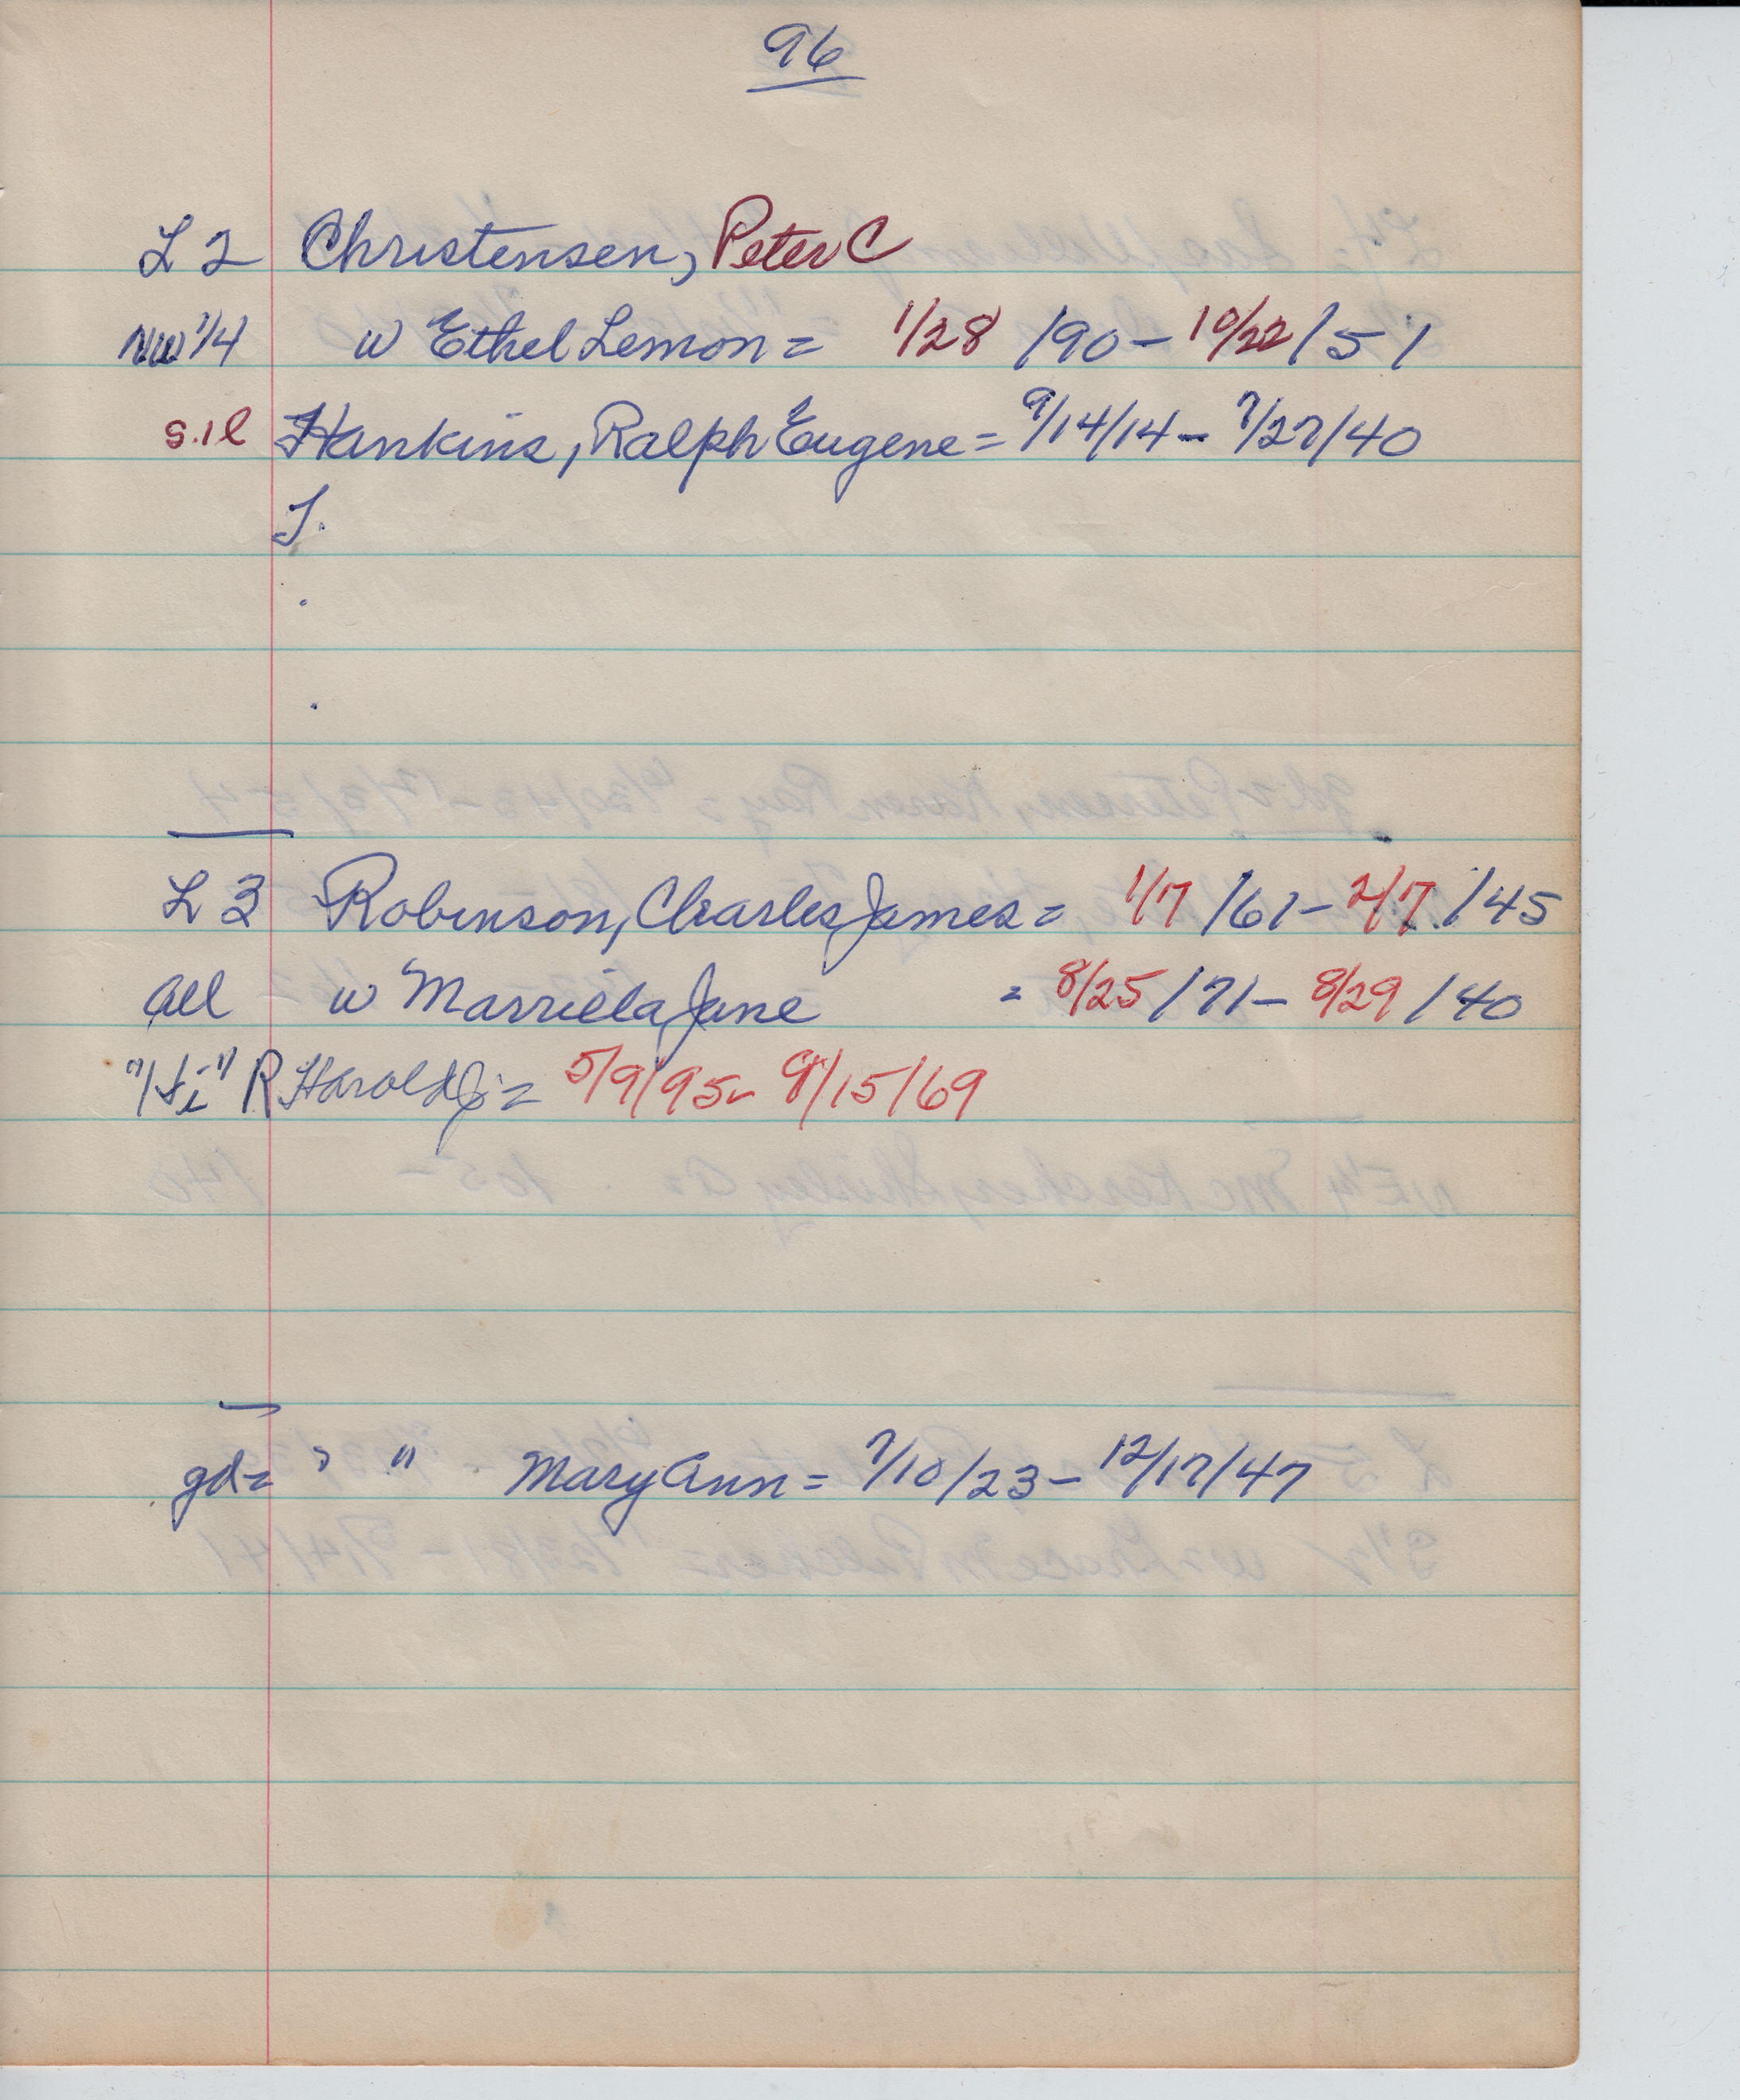 96
L 2 Christensen, Peter C
NW 1/4 w Ethel Lemon = 1/28 /90 - 10/22 / 51
s.il Hankins, Ralph Eugene = 9/14/14 - 7/27/40
L 3 Robinson, Charles James = 1/7 /61 - 2/7 /45
all w Marriella Jane = 8/25 /71 - 8/29 /40
"Hi" R Harold J. = 5/9/95 - 9/15/69
gd = " " Mary Ann = 7/10/23 - 12/17/47